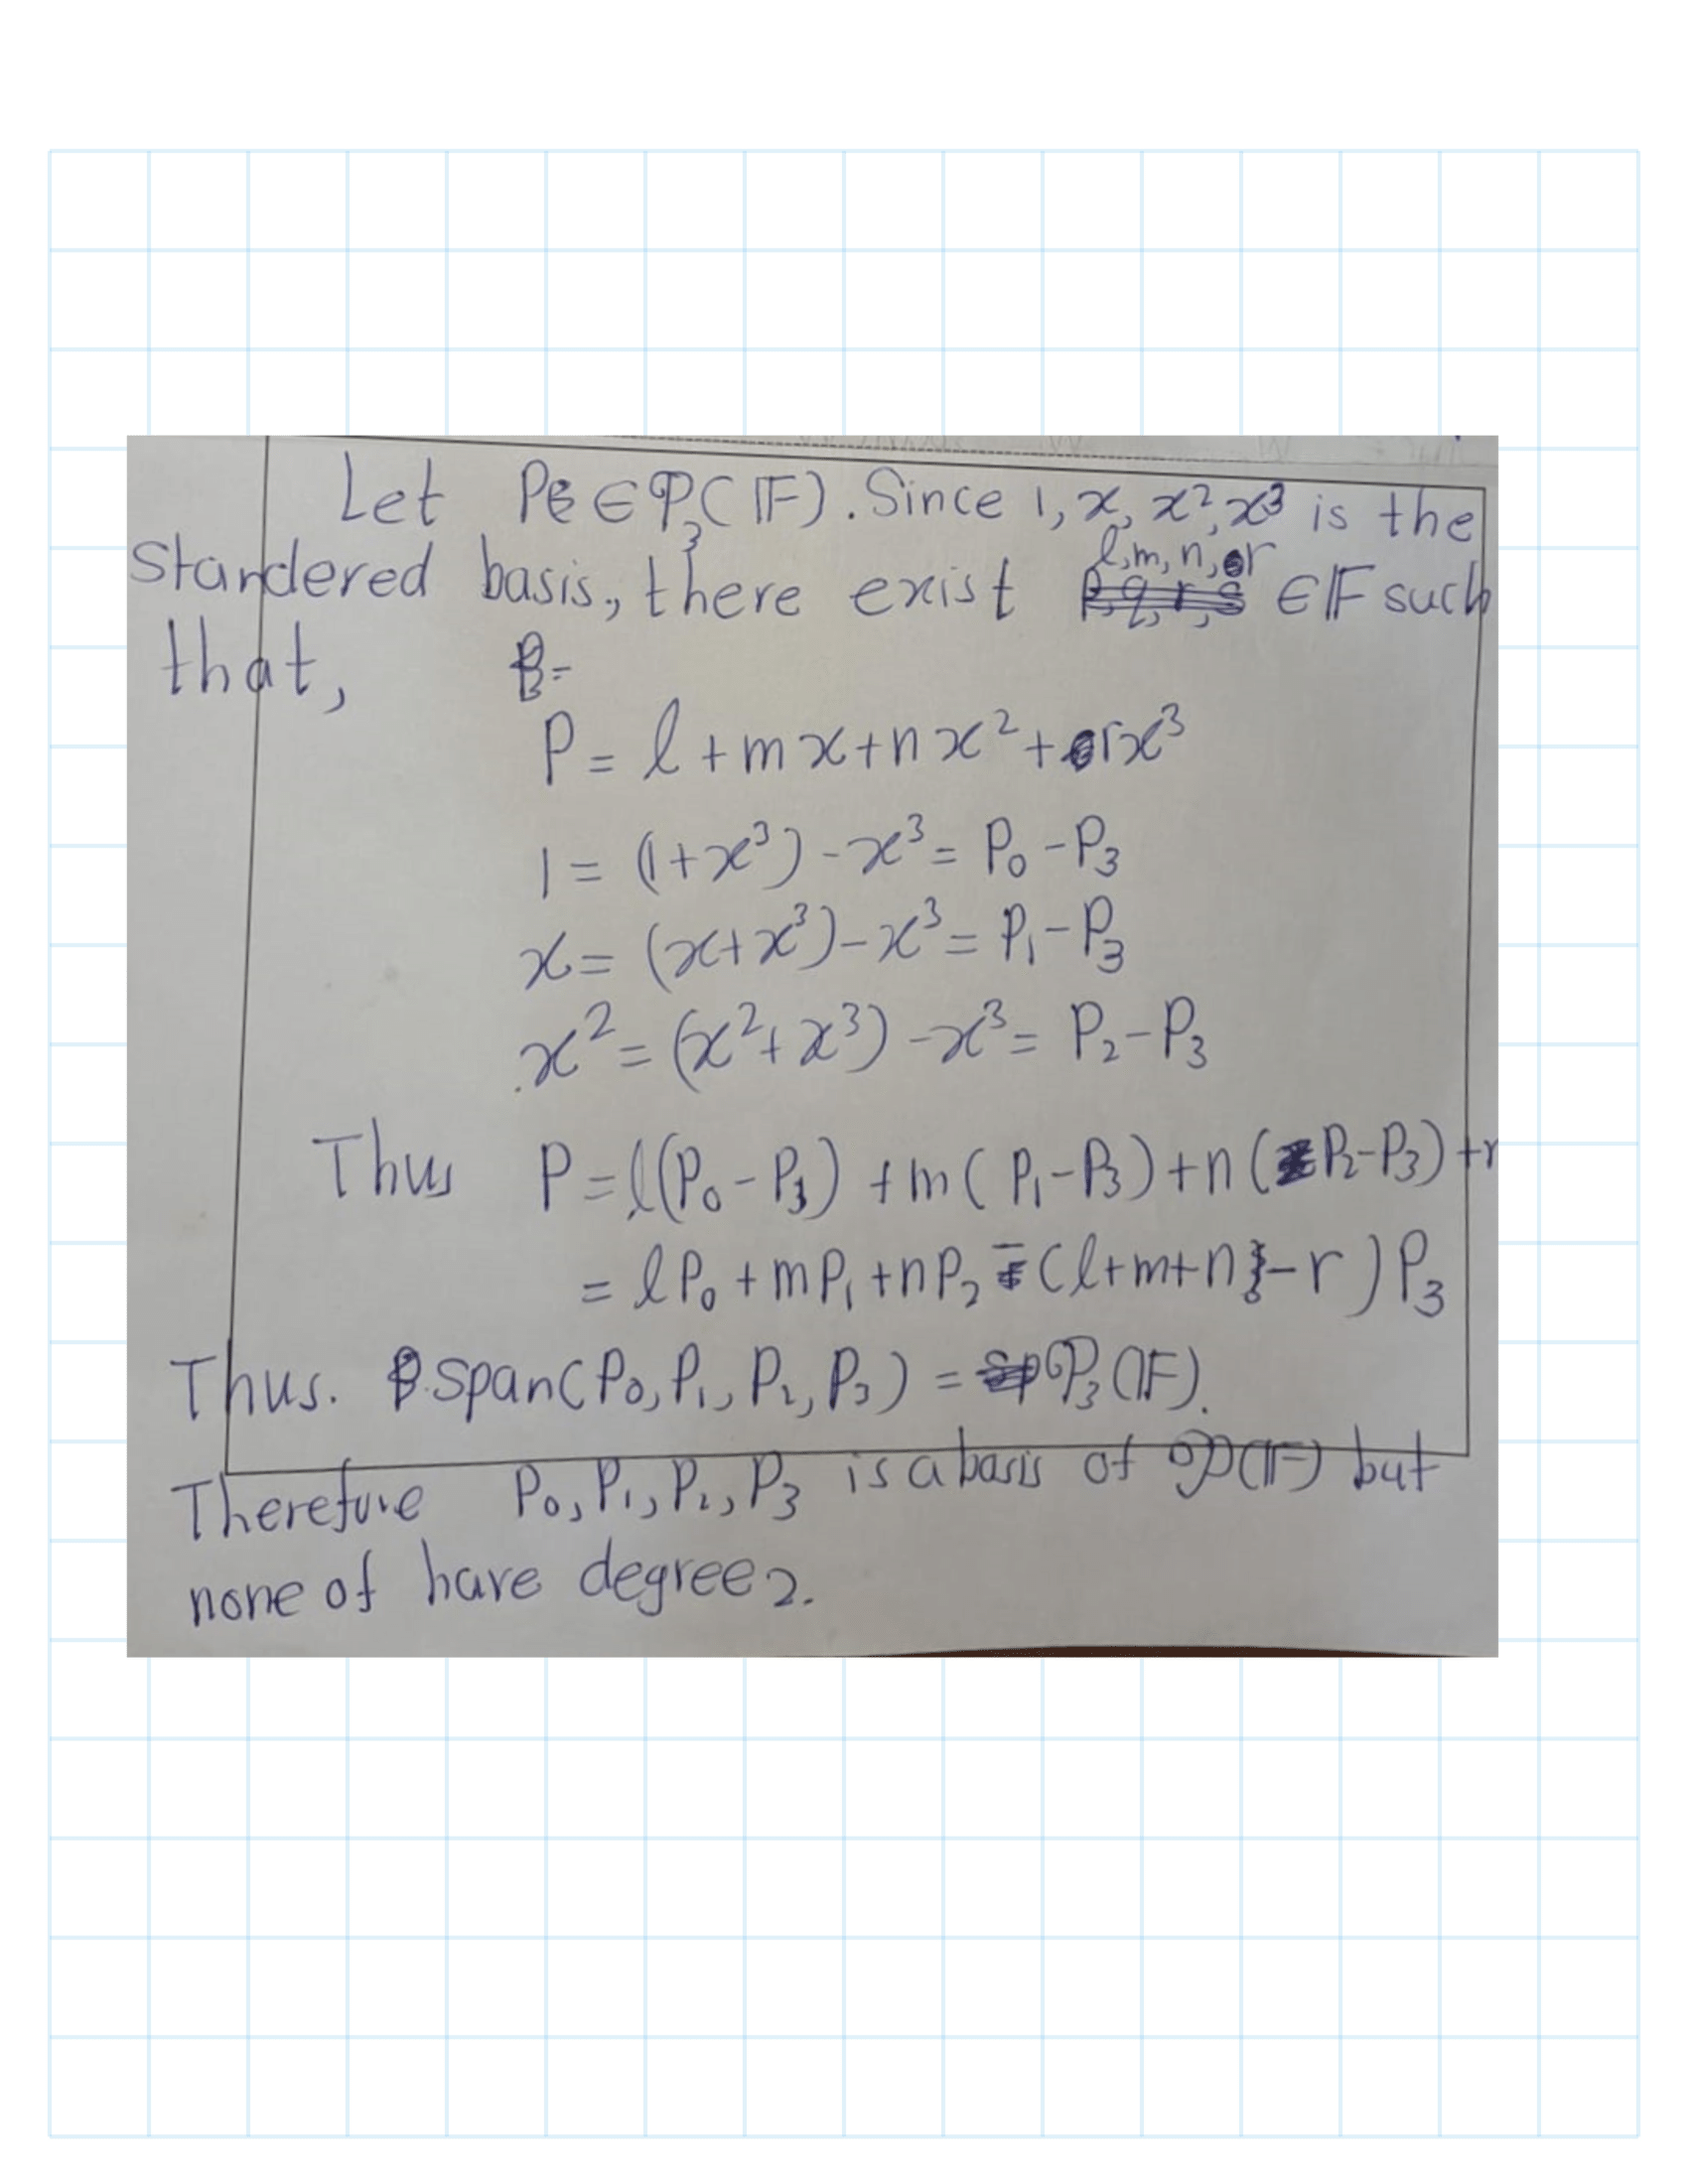 Let P ∈ 𝒫₃(𝔽). Since 1, x, x², x³ is the
Standered basis, there exist l, m, n, r ∈ 𝔽 such
that,
P = l + mx + nx² + rx³
1 = (1+x³) - x³ = P₀ - P₃
x = (x+x³) - x³ = P₁ - P₃
x² = (x²+x³) - x³ = P₂ - P₃
Thus P = l(P₀ - P₃) + m(P₁ - P₃) + n(P₂ - P₃) + r
= lP₀ + mP₁ + nP₂ - (l+m+n - r)P₃
Thus. span(P₀, P₁, P₂, P₃) = 𝒫₃(𝔽).
Therefore P₀, P₁, P₂, P₃ is a basis of 𝒫(𝔽) but
none of have degree 2.